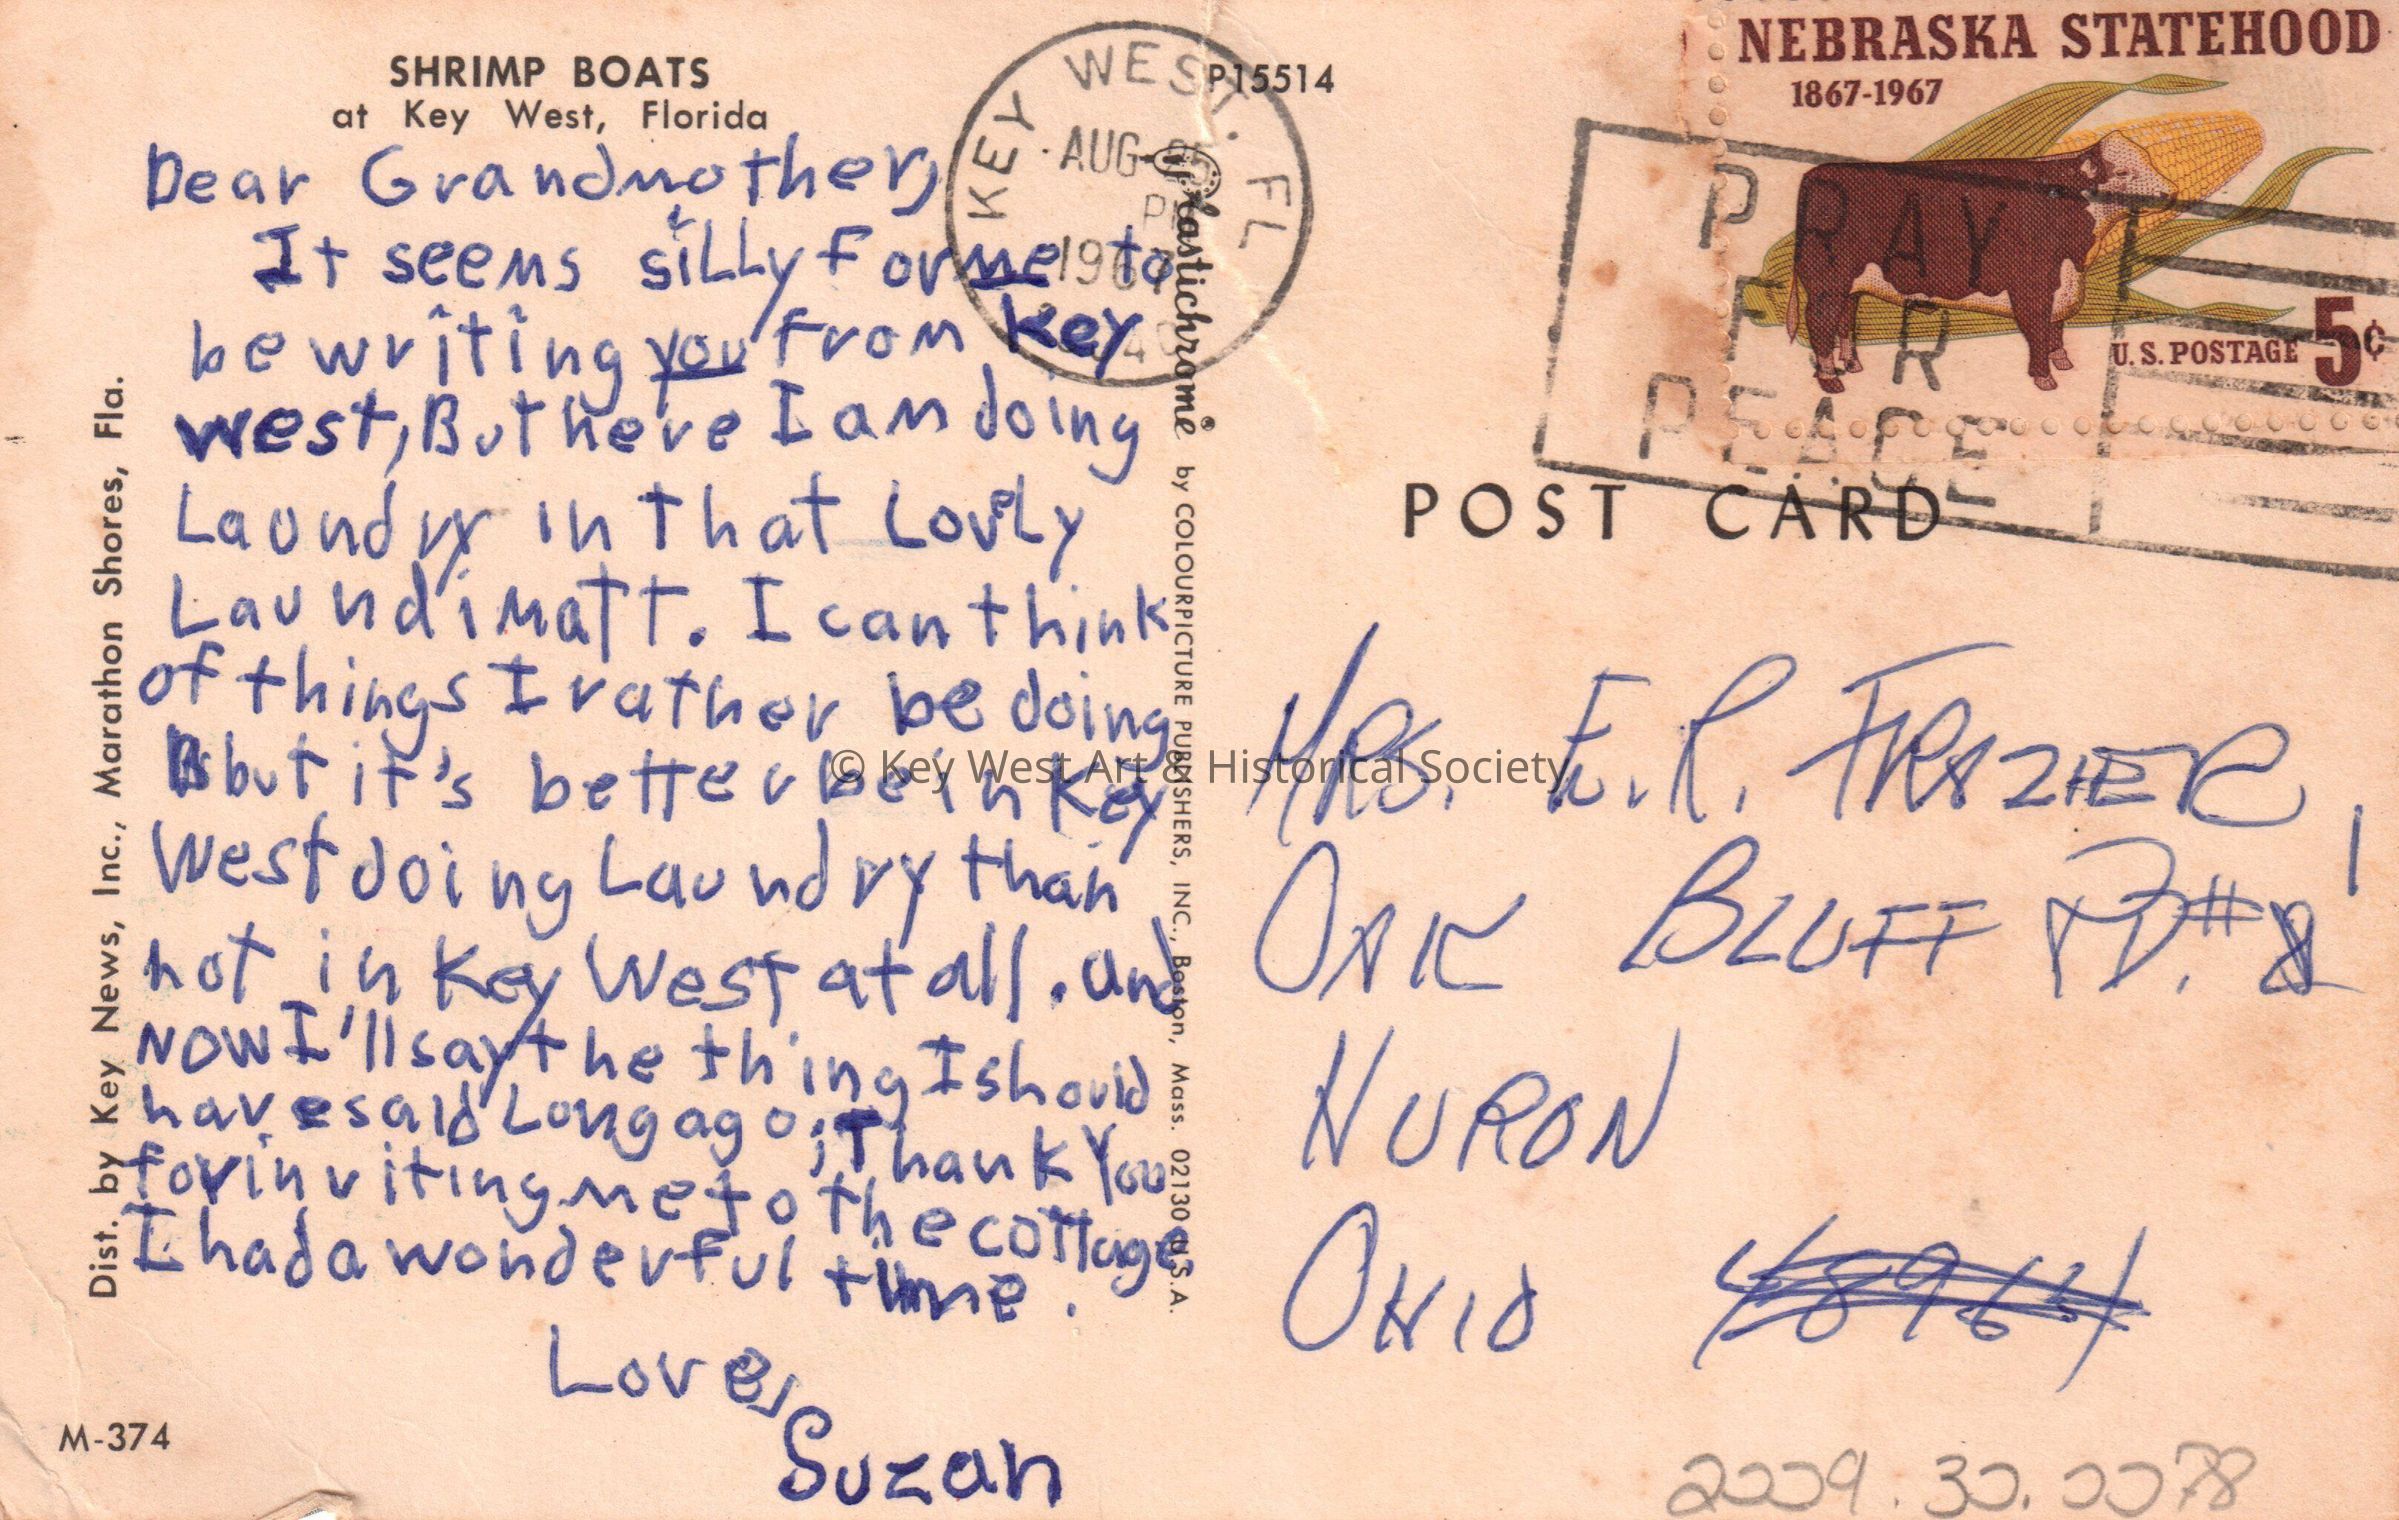 SHRIMP BOATS
at Key West, Florida
P15514
KEY WEST. FL
AUG
PM
NEBRASKA STATEHOOD
1867-1967
U.S. POSTAGE 5¢
PRAY
FOR
PEACE
POST CARD
Dear Grandmother,
It seems silly for me to
be writing you from Key
West, But here I am doing
Laundry in that Lovely
Laundimatt. I can think
of things I rather be doing
but it's better be in Key
West doing Laundry than
not in Key West at all. and
NOW I'll say the thing I should
have said Long ago; Thank You
for inviting me to the cottage
I had a wonderful time.
Love,
Suzan
MRS. E. R. FRAZIER
OAK BLUFF RD. #1
HURON
OHIO
Dist. by Key News, Inc., Marathon Shores, Fla.
Plastichrome® by COLOURPICTURE PUBLISHERS, INC., Boston, Mass. 02130 U.S.A.
M-374
© Key West Art & Historical Society
2009.30.0078